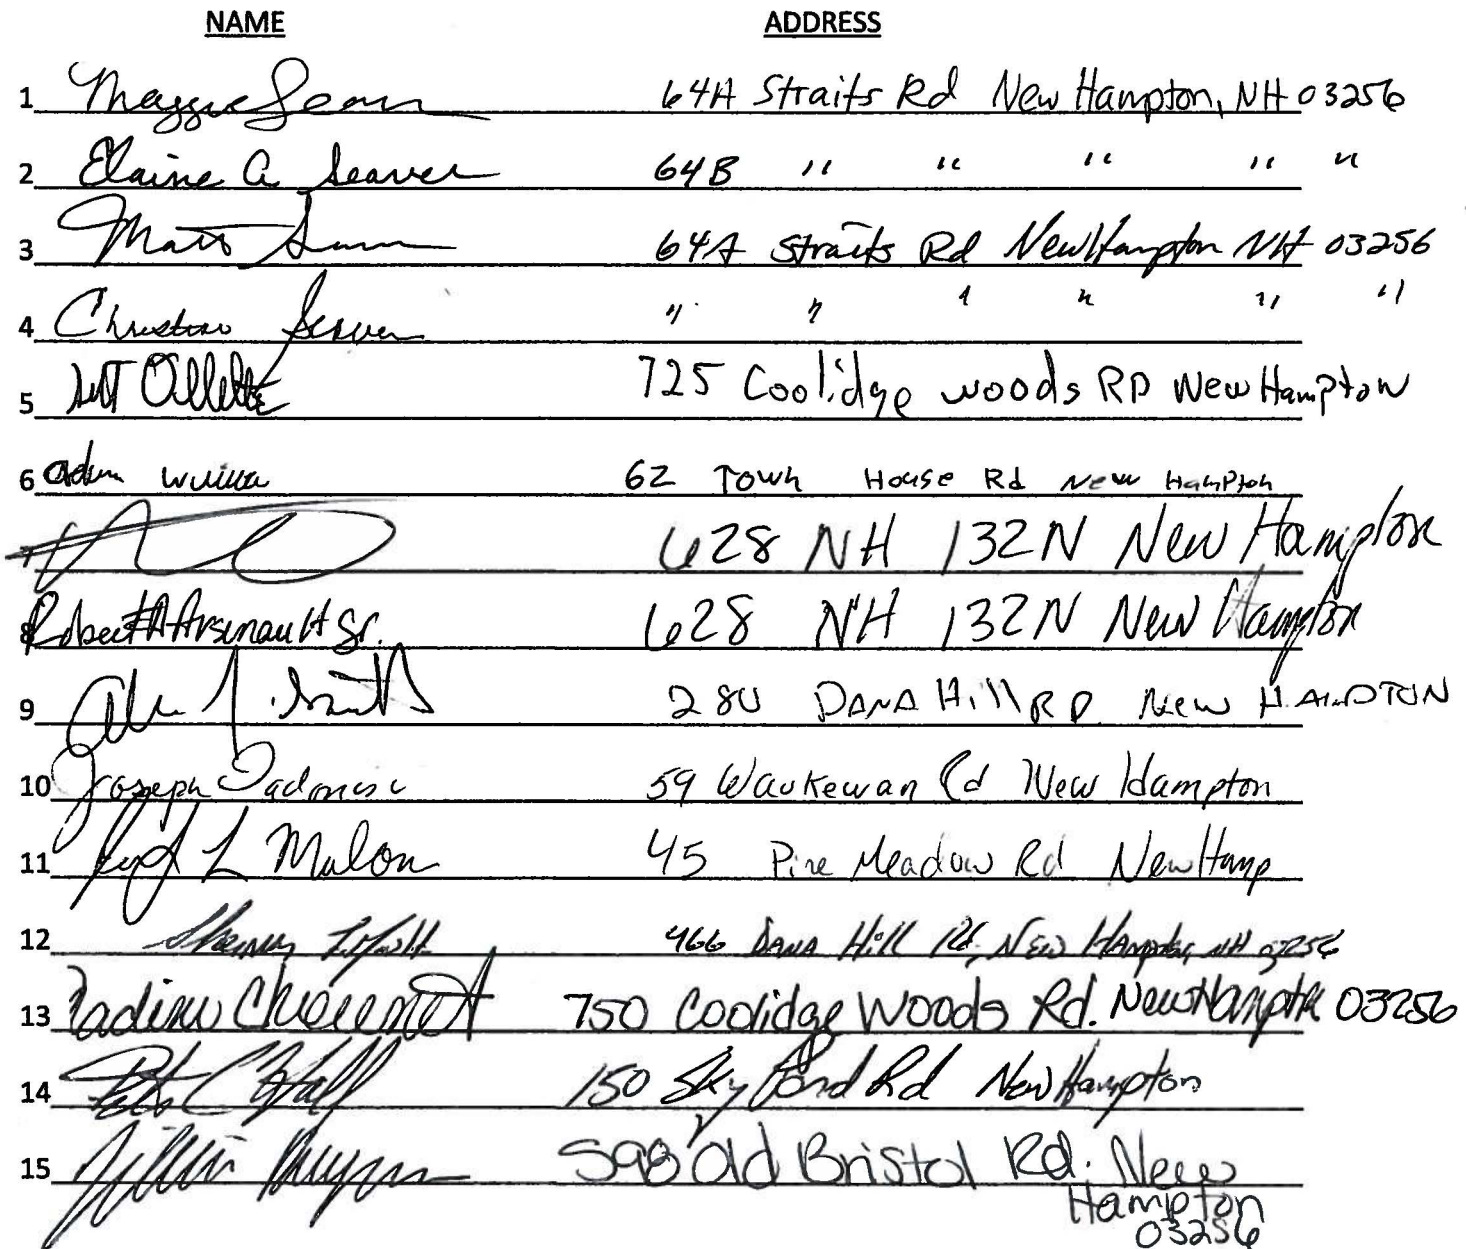 NAME ADDRESS
1 Maggie Sean 64A Straits Rd New Hampton, NH 03256
2 Elaine A Seaver 64B " " " " "
3 Matt 64A Straits Rd New Hampton NH 03256
4 Christine Seaver " " " " " "
5 Ollette 725 Coolidge woods RD New Hampton
6 Adam 62 Town House Rd New Hampton
7 628 NH 132N New Hampton
8 Robert A Arsenault Sr. 628 NH 132N New Hampton
9 280 DANA Hill RD New HAMPTON
10 Joseph 59 Waukewan Rd New Hampton
11 L Malon 45 Pine Meadow Rd New Hamp
12 466 DANA Hill Rd, New Hampton, NH 03256
13 750 Coolidge Woods Rd. New Hampton 03256
14 C Hall 150 Sky Pond Rd New Hampton
15 598 Old Bristol Rd. New
Hampton
03256